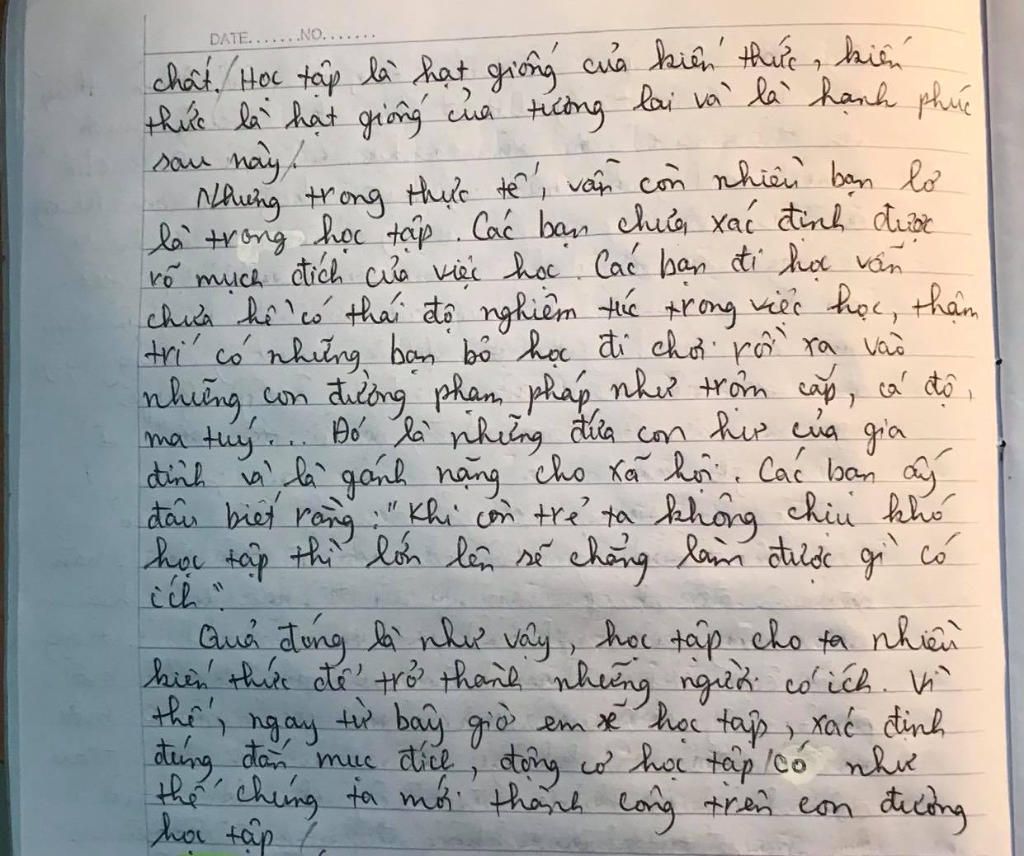 DATE.......NO.......
chất. / Học tập là hạt giống của kiến thức, kiến
thức là hạt giống của tương lai và là hạnh phúc
sau này /
Nhưng trong thực tế, vẫn còn nhiều bạn lơ
là trong học tập. Các bạn chưa xác định được
rõ mục đích của việc học. Các bạn đi học vẫn
chưa hề có thái độ nghiêm túc trong việc học, thậm
trí có những bạn bỏ học đi chơi rồi ra vào
những con đường phạm pháp như trộm cắp, cá độ,
ma tuý... Đó là những đứa con hư của gia
đình và là gánh nặng cho xã hội. Các bạn ấy
đâu biết rằng: "Khi còn trẻ ta không chịu khó
học tập thì lớn lên sẽ chẳng làm được gì có
ích".
Quả đúng là như vậy, học tập cho ta nhiều
kiến thức để trở thành những người có ích. Vì
thế, ngay từ bây giờ em sẽ học tập, xác định
đúng đắn mục đích, động cơ học tập / có như
thế chúng ta mới thành công trên con đường
học tập /